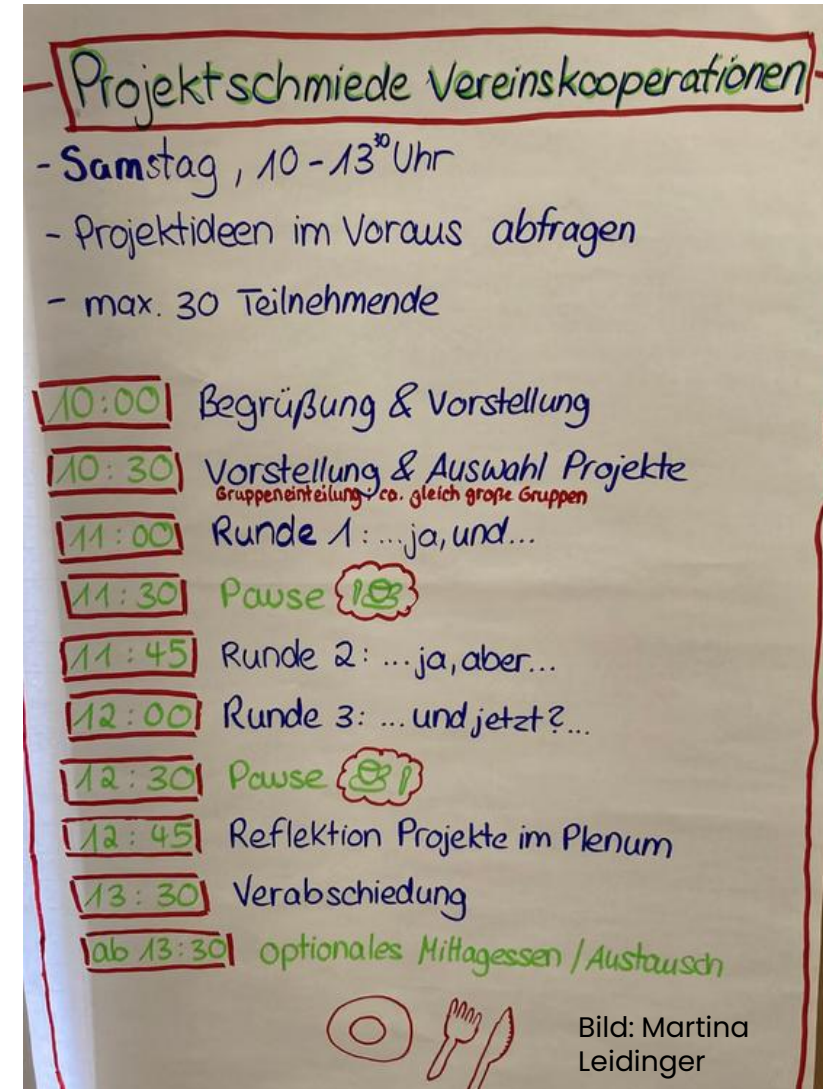 Projektschmiede Vereinskooperationen
- Samstag, 10-13³⁰ Uhr
- Projektideen im Voraus abfragen
- max. 30 Teilnehmende
10:00 Begrüßung & Vorstellung
10:30 Vorstellung & Auswahl Projekte
Gruppeneinteilung: ca. gleich große Gruppen
11:00 Runde 1: ...ja, und...
11:30 Pause
11:45 Runde 2: ...ja, aber...
12:00 Runde 3: ...und jetzt?...
12:30 Pause
12:45 Reflektion Projekte im Plenum
13:30 Verabschiedung
ab 13:30 optionales Mittagessen / Austausch
Bild: Martina
Leidinger